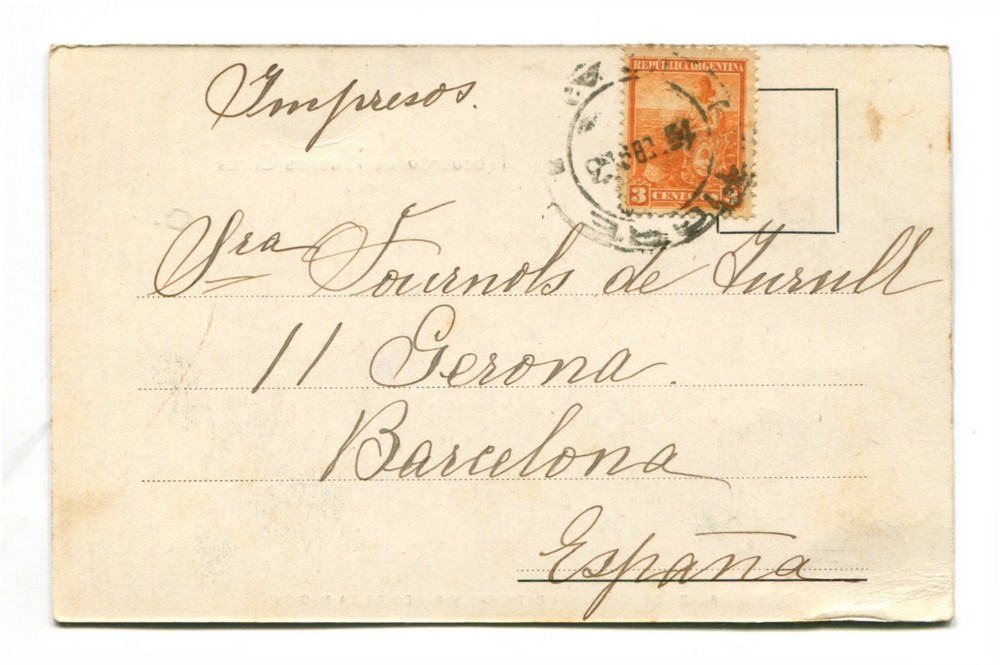 Impresos.
REPUBLICA ARGENTINA
3 CENT
Sra Fournols de Turull
11 Gerona.
Barcelona
España